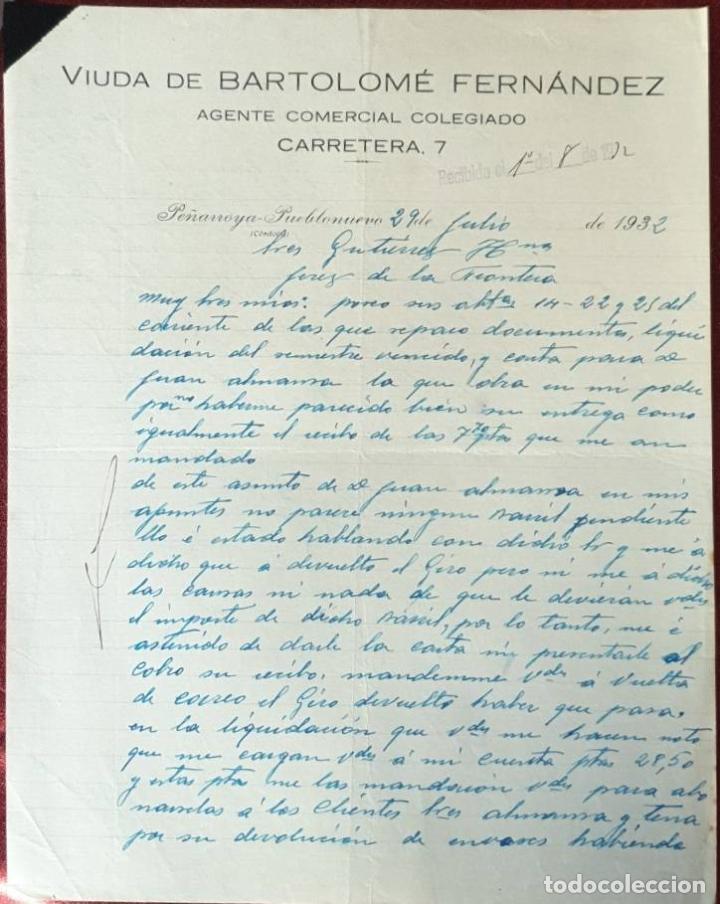 VIUDA DE BARTOLOMÉ FERNÁNDEZ
AGENTE COMERCIAL COLEGIADO
CARRETERA, 7
Recibido el 1º del 8 de 1932
Peñarroya-Pueblonuevo 29 de Julio de 1932
(CÓRDOBA)
Sres Gutiérrez Hnos
Jerez de la Frontera
Muy Sres mios: poseo sus 14-22 y 25 del
coriente de las que reparo documentos, liqui
dación del semestre vencido, y carta para D
Juan Almansa la que obra en mi poder
por no haberme parecido bien su entrega como
igualmente el recibo de las ptas que me an
mandado
de este asunto de D Juan Almansa en mis
apuntes no parese ningun barril pendiente
Yo é estado hablando con dicho Sr y me á
dicho que á devuelto el Giro pero ni me á dicho
las causas ni nada de que le devieran Vdes
el importe de dicho barril, por lo tanto, me é
astenido de darle la carta ni presentarle al
cobro su recibo. mandemme Vdes á vuelta
de correo el Giro devuelto haber que pasa.
en la liquidación que Vdes me hacen noto
que me cargan Vdes á mi cuenta ptas 28,50
y estas ptas me las mandarón Vdes para abo
narselas á los Clientes Sres Almansa y Tena
por su devolución de envases habiendo
todocoleccion
todocoleccion.net